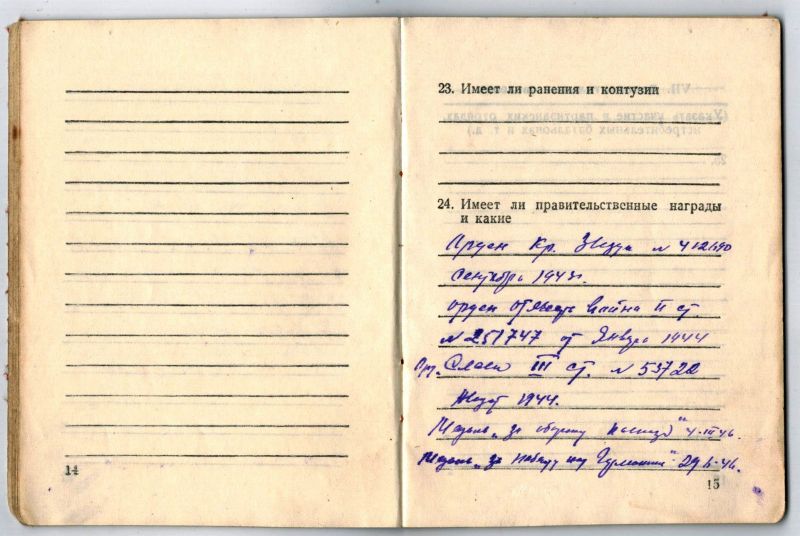 14
23. Имеет ли ранения и контузии
24. Имеет ли правительственные награды
и какие
Орден Кр. Звезда N
Сентябрь 1943г.
орден отечеств война II ст.
N 251747 от Января 1944
Ор. Славы III ст. N 53722
1944.
Медаль "за оборону 4-III 46.
Медаль "за победу над Германией" 46.
15